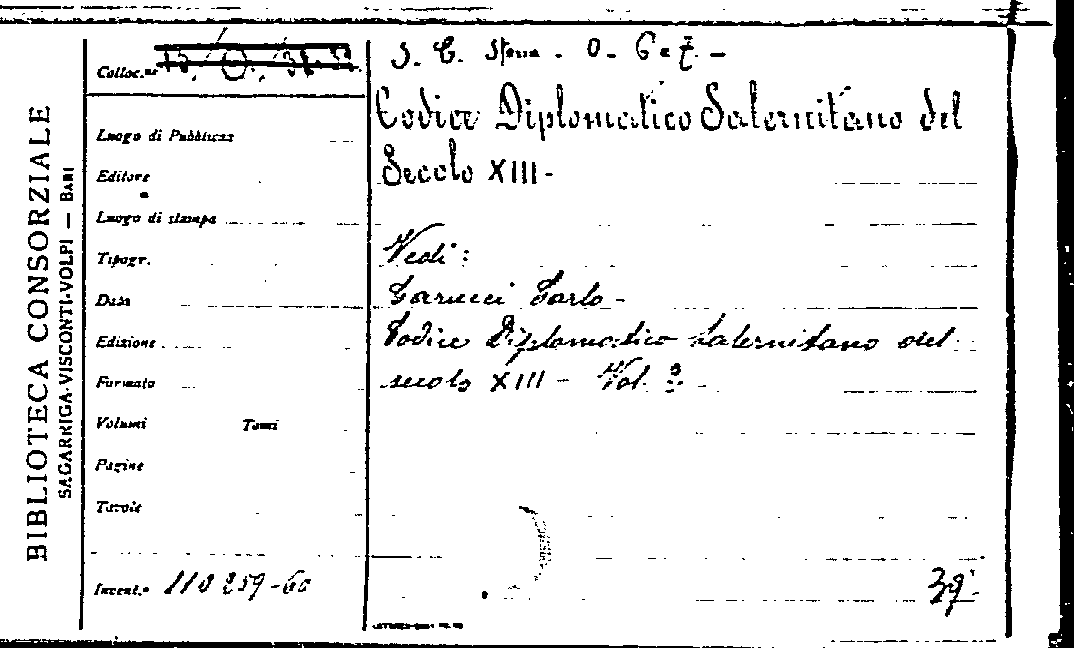 BIBLIOTECA CONSORZIALE
SAGARRIGA-VISCONTI-VOLPI — BARI
Colloc.ne
Luogo di Pubblicaz
Editore
Luogo di stampa
Tipogr.
Data
Edizione
Formato
Volumi Tomi
Pagine
Tavole
Invent.° 110259-60
S. C. Storia - O. 6 e 7. -
Codice Diplomatico Salernitano del
Secolo XIII -
Vedi:
Carucci Carlo -
Codice Diplomatico Salernitano del
secolo XIII - Vol. 2
39